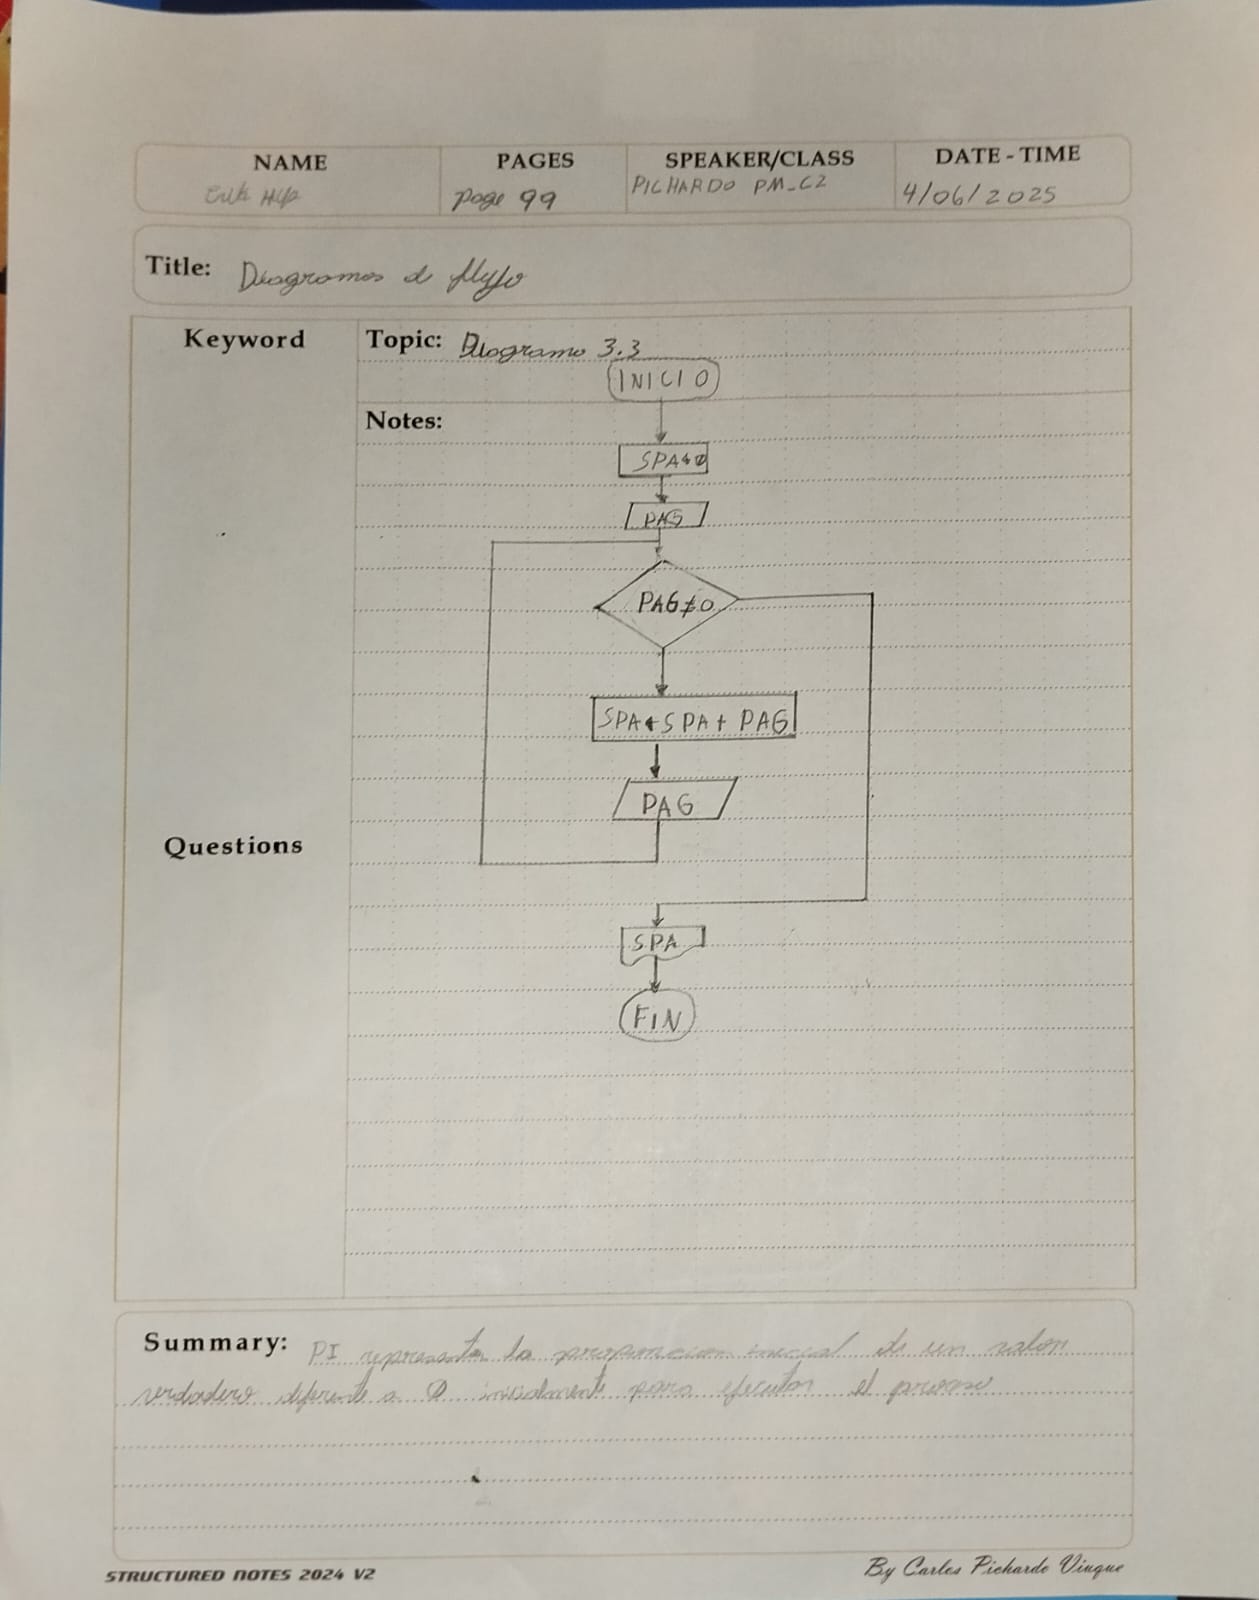 NAME PAGES SPEAKER/CLASS DATE - TIME
page 99 PICHARDO PM_C2 4/06/2025
Title: Diagramas d flujo
Keyword
Topic: Diagrama 3.3
INICIO
Notes:
SPA←0
PAG
PAG≠0
SPA←SPA+PAG
PAG
Questions
SPA
FIN
Summary: PI representa la inicial de un valor
verdadero diferente a 0 inicialmente para ejecutar el proceso
STRUCTURED NOTES 2024 V2
By Carlos Pichardo Viuque